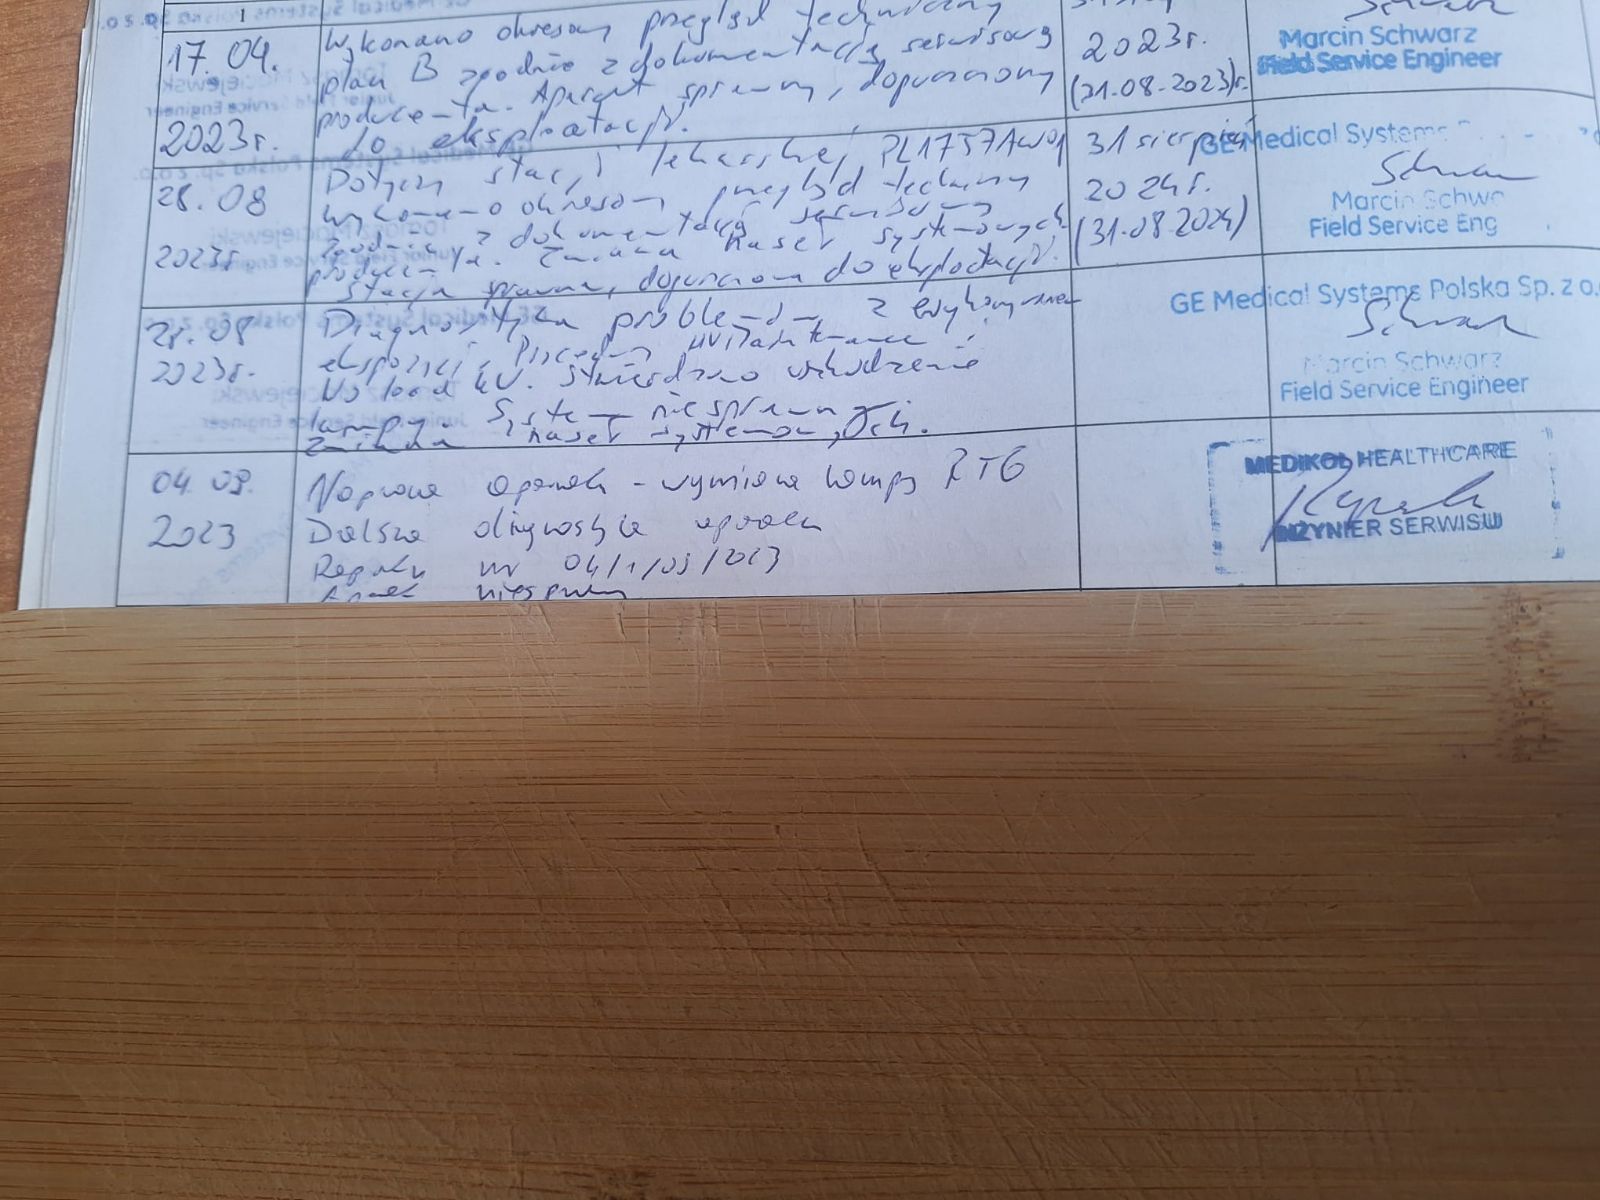 1
17.04.
2023r.
Wykonano okresowy przegląd techniczny
plan B zgodnie z dokumentacją serwisową
producenta. Aparat sprawny, dopuszczony
do eksploatacji.
2023r.
(31.08.2023)r.
Marcin Schwarz
Field Service Engineer
28.08
2023r
Dotyczy stacji lekarskiej PL1757AW01
Wykonano okresowy przegląd techniczny
zgodnie z dokumentacją serwisową
producenta. Zmiana haseł systemowych
Stacja sprawna, dopuszczona do eksploatacji.
31 sierpień
2024r.
(31.08.2024)
GE Medical Systems
Marcin Schwa
Field Service Eng
28.08
2023r.
Diagnostyka problemu z wykonywaniem
ekspozycji. Procedury HV Maintenance i
No load kV. Stwierdzono uszkodzenie
lampy. System niesprawny.
Zmiana haseł systemowych.
GE Medical Systems Polska Sp. z o.o.
Marcin Schwarz
Field Service Engineer
04.09.
2023
Naprawa aparatu - wymiana lampy RTG
Dalsza diagnostyka aparatu
Raportu nr 04/1/09/2023
Aparat niesprawny
MEDIKOL HEALTHCARE
INŻYNIER SERWISU